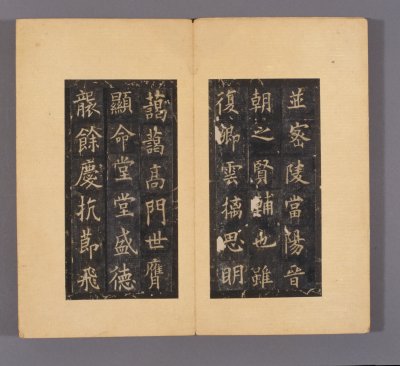 並密陵當陽晉
朝之賢輔也雖
復卿雲摛思明
藹藹高門世膺
顯命堂堂盛德
襲餘慶抗莭飛